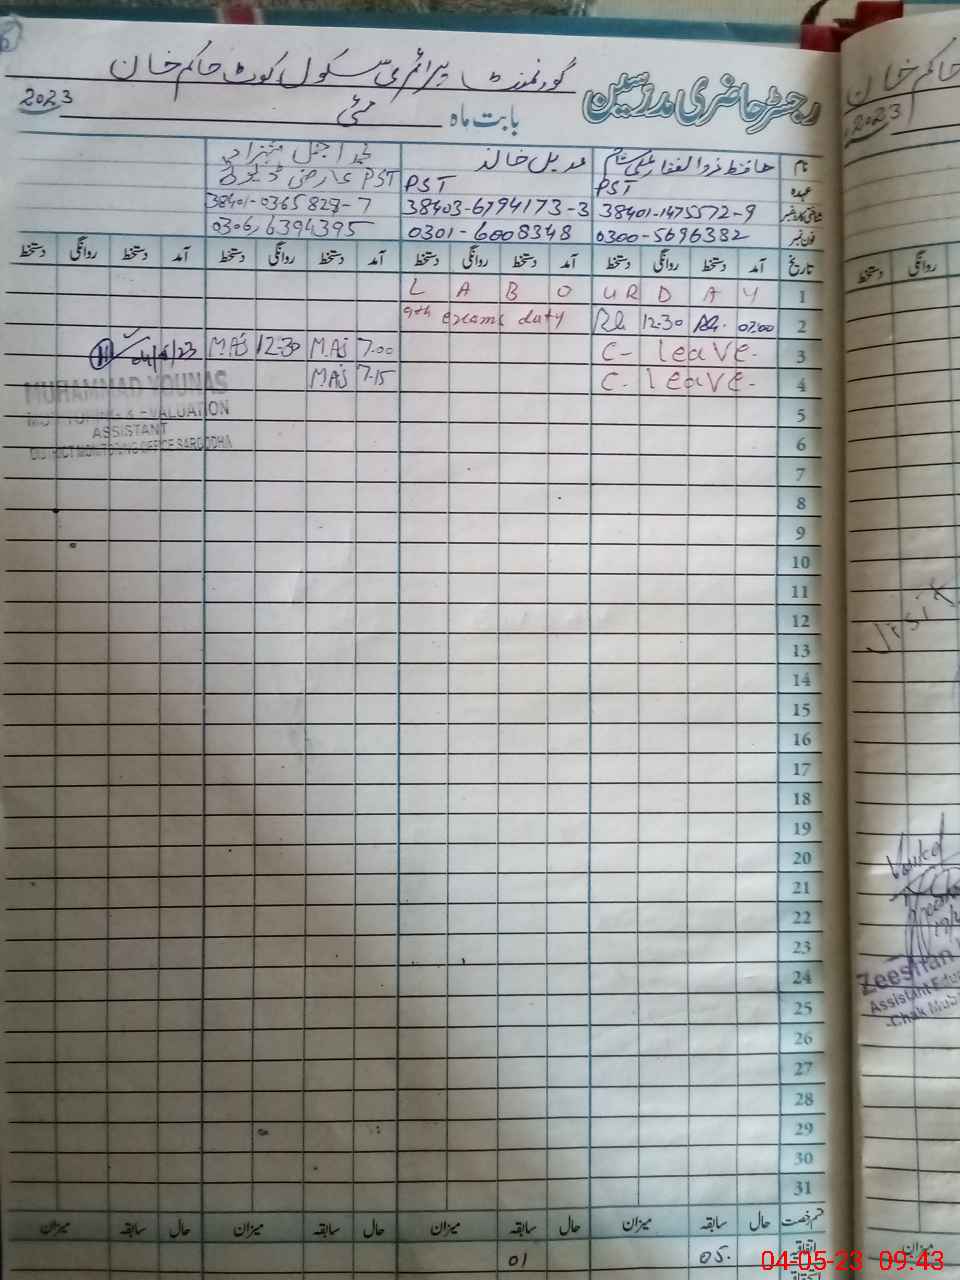 گورنمنٹ پرائمری سکول کوٹ حاکم خان
رجسٹر حاضری مدرسین
بابت ماہ مئی 2023
نام حافظ ذوالفقار علی عدیل خالد
عہدہ PST PST PST عارضی ڈیوٹی
شناختی کارڈ نمبر 38401-1475572-9 38403-6794173-3 38401-0365829-7
فون نمبر 0300-5696382 0301-6008348 0306,6394395
تاریخ آمد دستخط روانگی دستخط آمد دستخط روانگی دستخط آمد دستخط روانگی دستخط آمد دستخط روانگی دستخط
1 L A B O UR D A Y
2 07:00 12:30 9th exams duty
3 C- leave- 7-00 MAS 12:30 MAS 04/5/23
4 C- leave- 7-15 MAS
MUHAMMAD YOUNAS
MONITORING & EVALUATION
ASSISTANT
DISTRICT MONITORING OFFICE SARGODHA
5
6
7
8
9
10
11
12
13
14
15
16
17
18
19
20
21
22
23
24
25
26
27
28
29
30
31
قسم رخصت حال سابقہ میزان حال سابقہ میزان حال سابقہ میزان حال سابقہ میزان
اتفاقیہ 05 01
حاکم خان
2023
روانگی دستخط
Visit
Zeeshan
Assistant Edu
Chak Mub
میزان
04-05-23 09:43